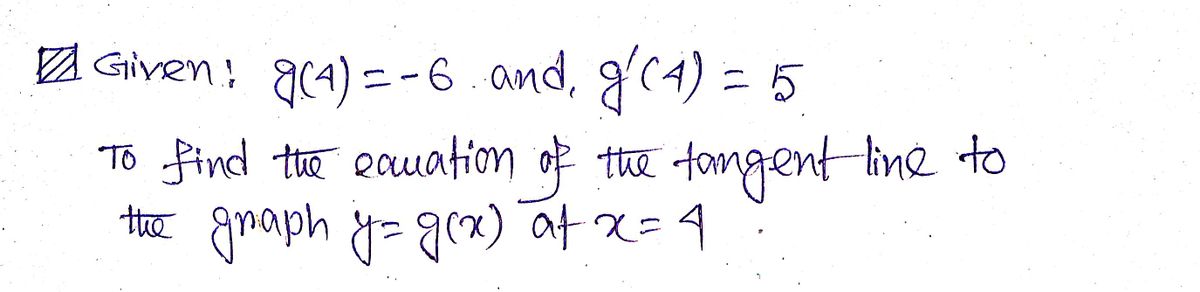 Given: g(4) = -6 and, g'(4) = 5
To find the equation of the tangent line to
the graph y = g(x) at x = 4.